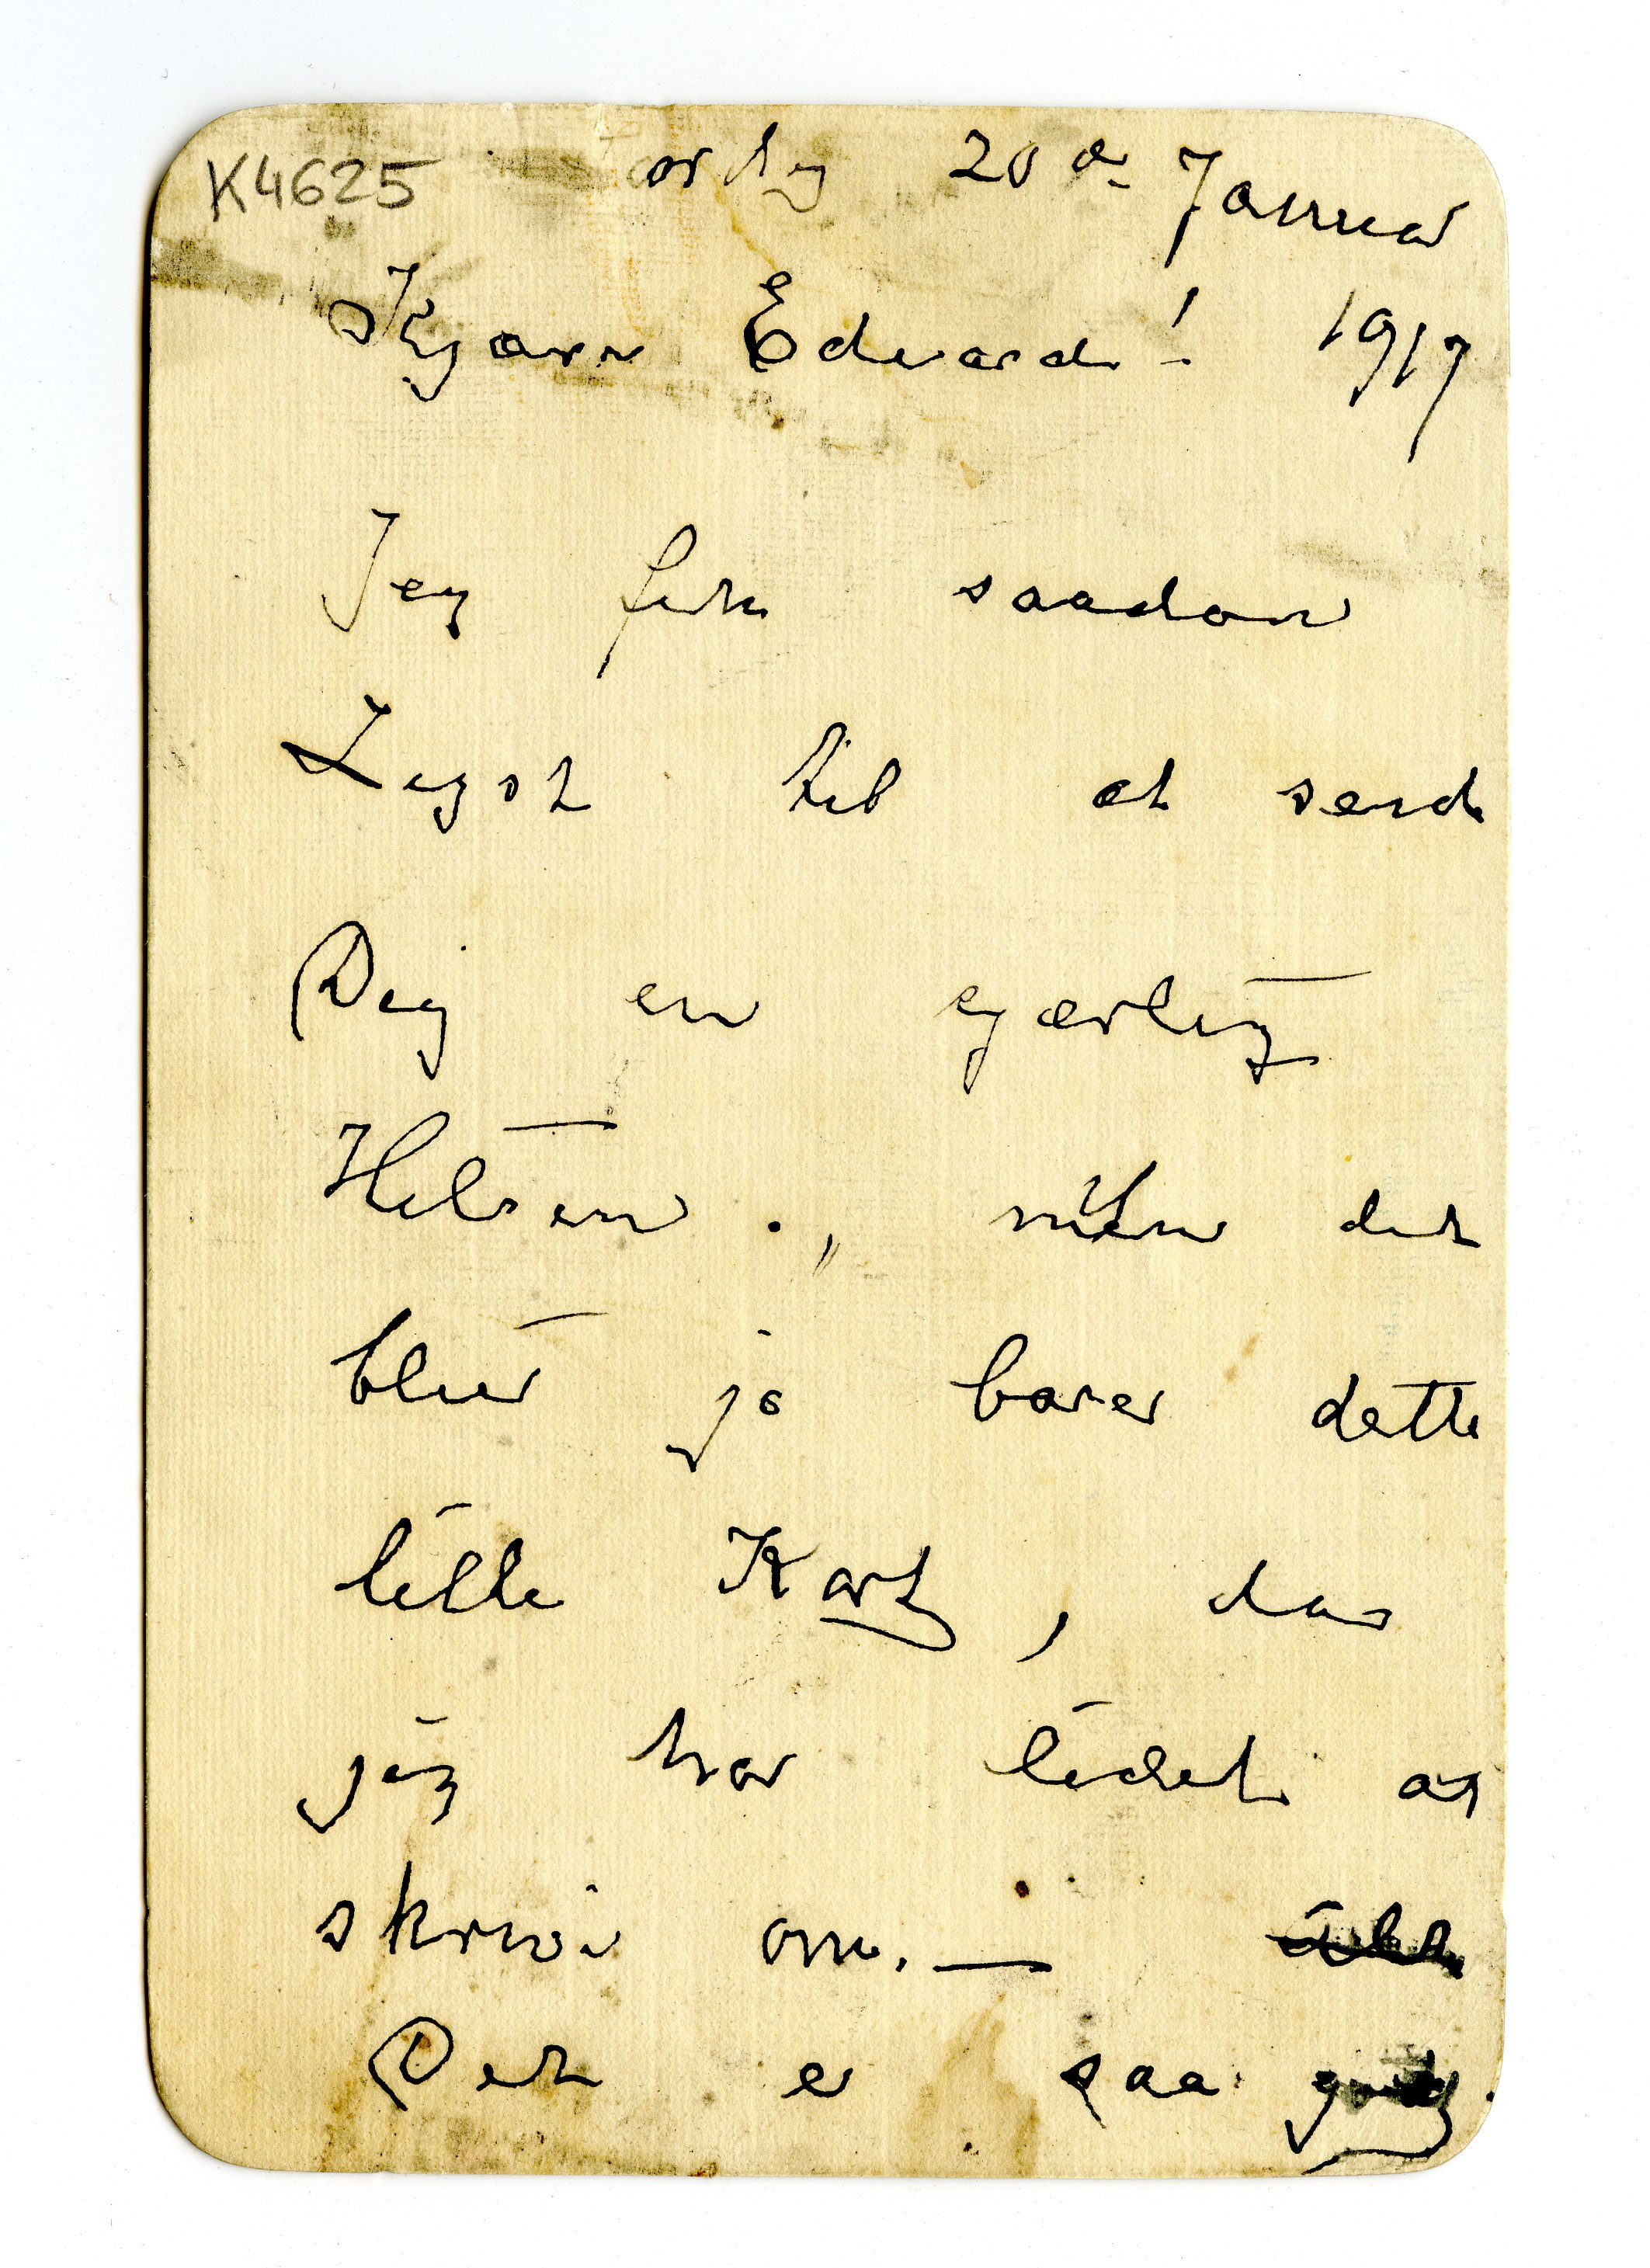 K4625
20 de Januar
Kjære Edvard! 1917
Jeg fik saadan
Lyst til at sende
Dig en kjærlig
Hilsen., men det
blir jo bare dette
lille Kort, da
jeg har lidet at
skrive om. —
Det er saa